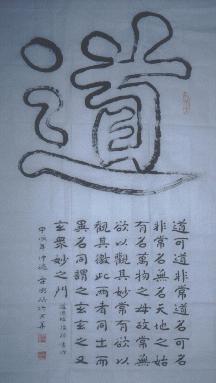 道
道可道非常道名可名
非常名無名天地之始
有名萬物之母故常無
欲以觀其妙常有欲以
觀其徼此兩者同出而
異名同謂之玄玄之又
玄眾妙之門